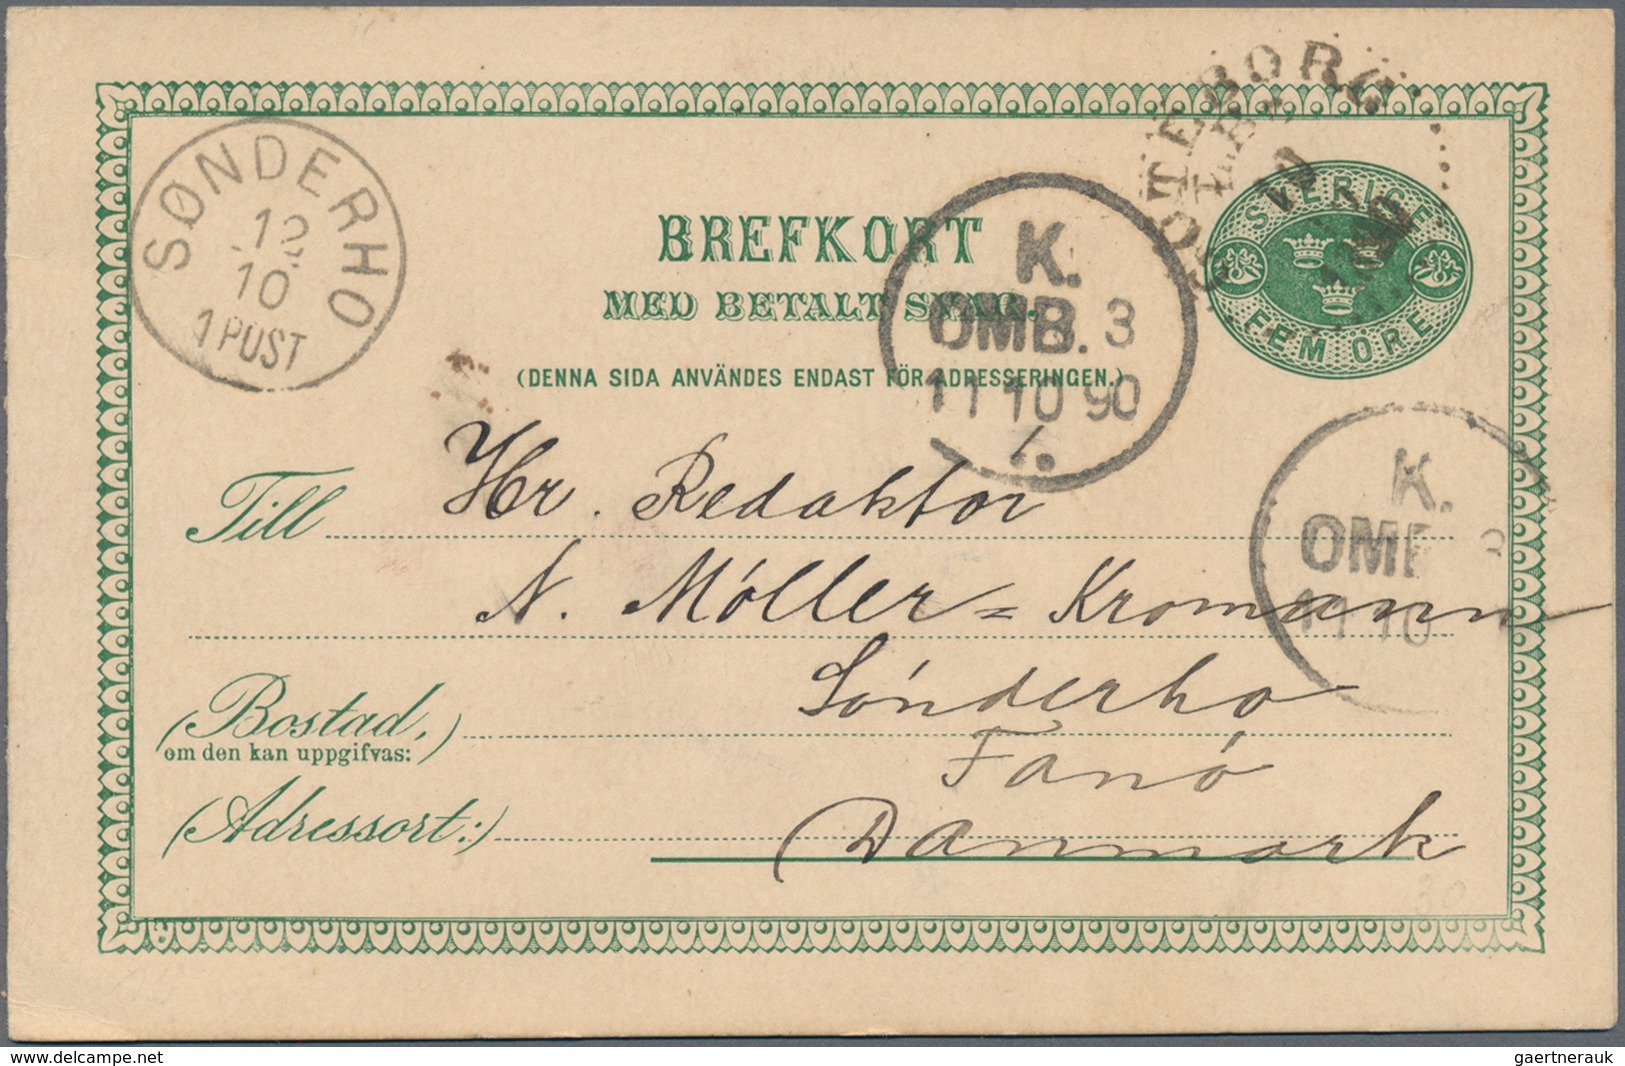 GÖTEBORG
SØNDERHO
12
10
1 POST
SVERIGE
FEM ÖRE
BREFKORT
MED BETALT SVAR.
(DENNA SIDA ANVÄNDES ENDAST FÖR ADRESSERINGEN.)
K.
OMB. 3
11 10 90
K.
OMB 3
11 10
Till Hr. Redaktör
N. Möller=Kromann
(Bostad,) Sónderho
om den kan uppgifvas:
Fanó
(Adressort:) Danmark
30
delcampe.net
gaertnerauk